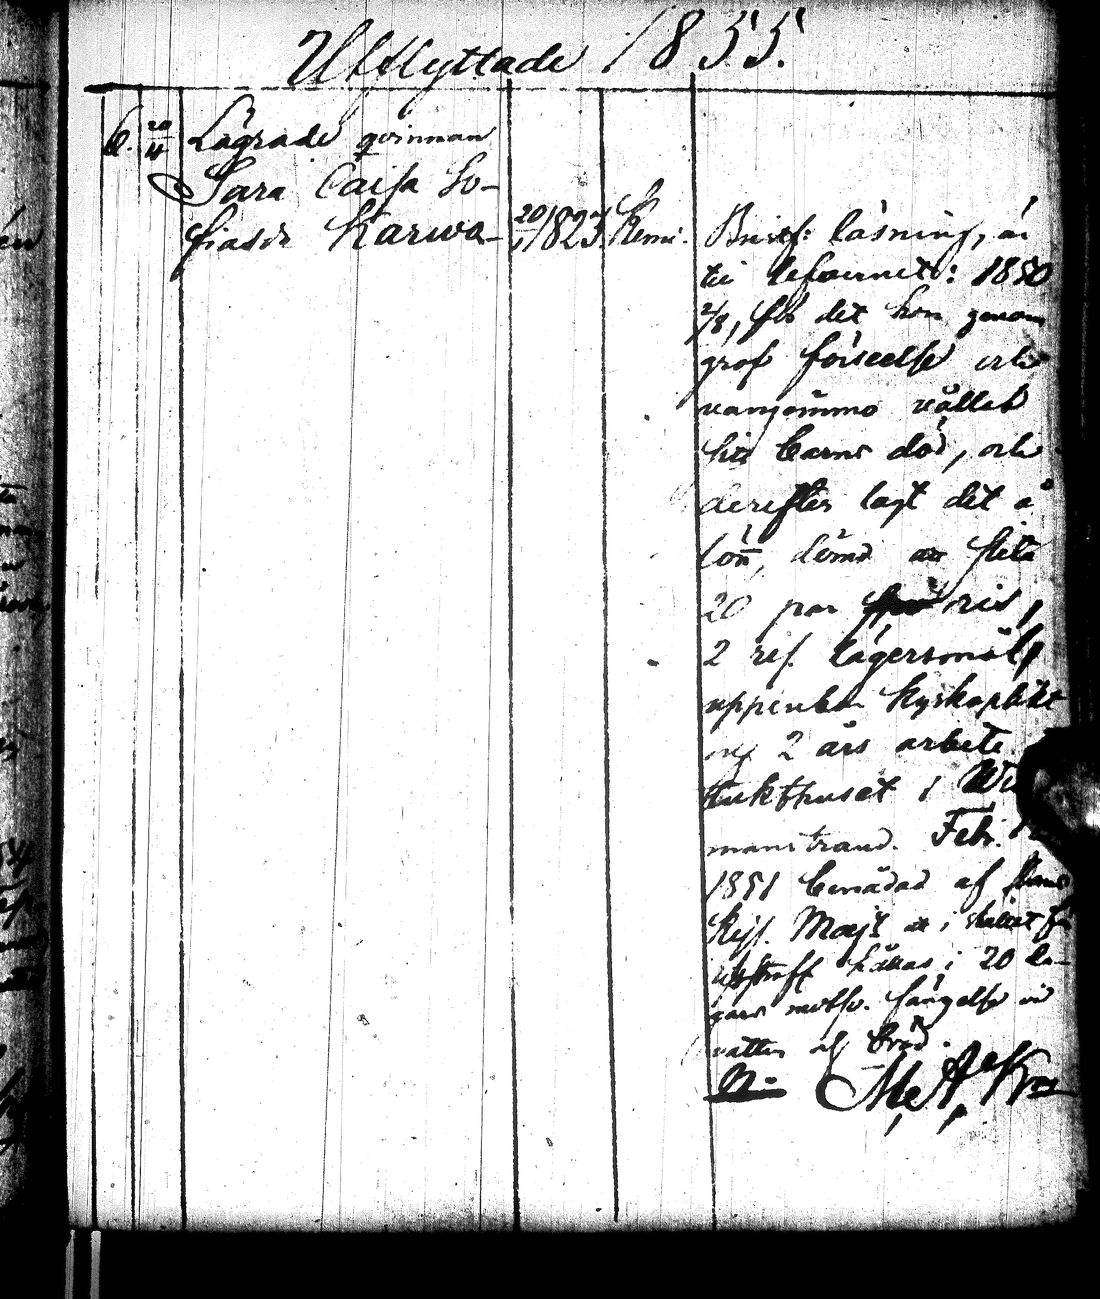 Utflyttade 1855.
6. 20/4 Lägrade qvinnan
Sara Caisa So-
fiasdr Karwa- 20/1 1823 Kemi. läsning, är
till lefvernet: 1850
2/8, för det hon genom
grof förseelse och
vangömmo vållat
sitt barns död, och
derefter lagt det å
lönn, dömd att slita
20 par ris,
2 rss. lägersmål,
uppenbar kyrkoplikt
och 2 års arbete
tukthuset i Wil
manstrand. Febr.
1851 benådad af Hans
Kejs. Majt att i stället för
risstraff hållas i 20 da-
gars fängelse vid
vatten och bröd.